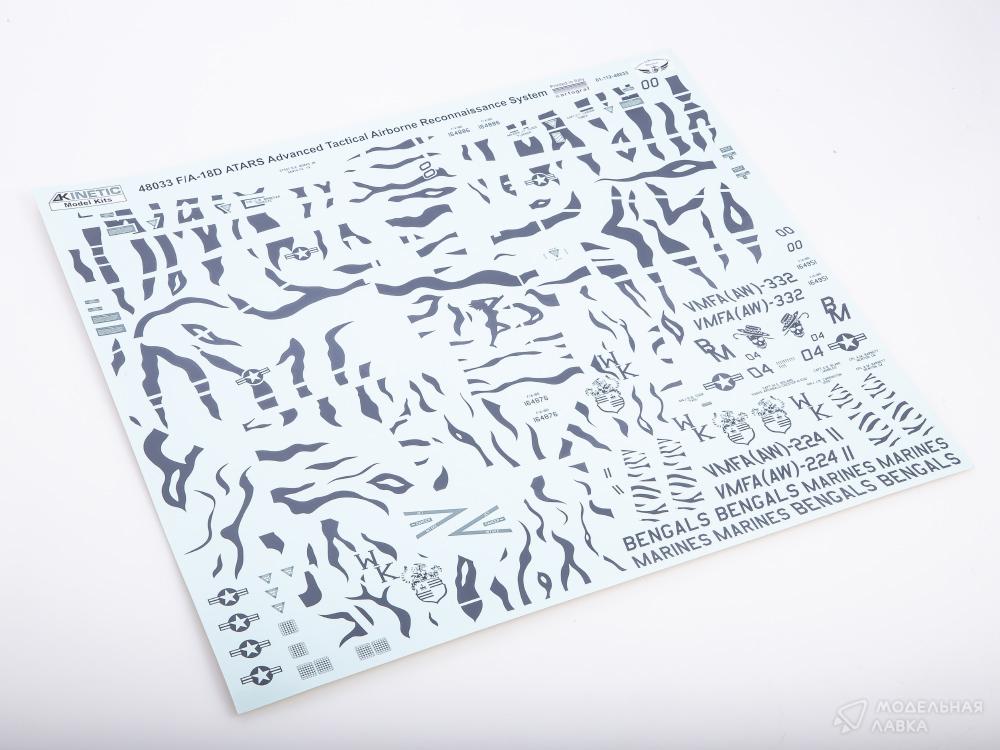 KINETIC
Model Kits
48033 F/A-18D ATARS Advanced Tactical Airborne Reconnaissance System
Printed in Italy
cartograf
61-112-48033
00
164886
164886
00
00
00
164951
164951
VMFA(AW)-332
VMFA(AW)-332
BM
BM
04
04
04
04
164876
164876
WK
WK
WK
WK
VMFA(AW)-224 II
VMFA(AW)-224 II
II
II
BENGALS BENGALS MARINES MARINES
MARINES MARINES BENGALS BENGALS
МОДЕЛЬНАЯ
ЛАВКА